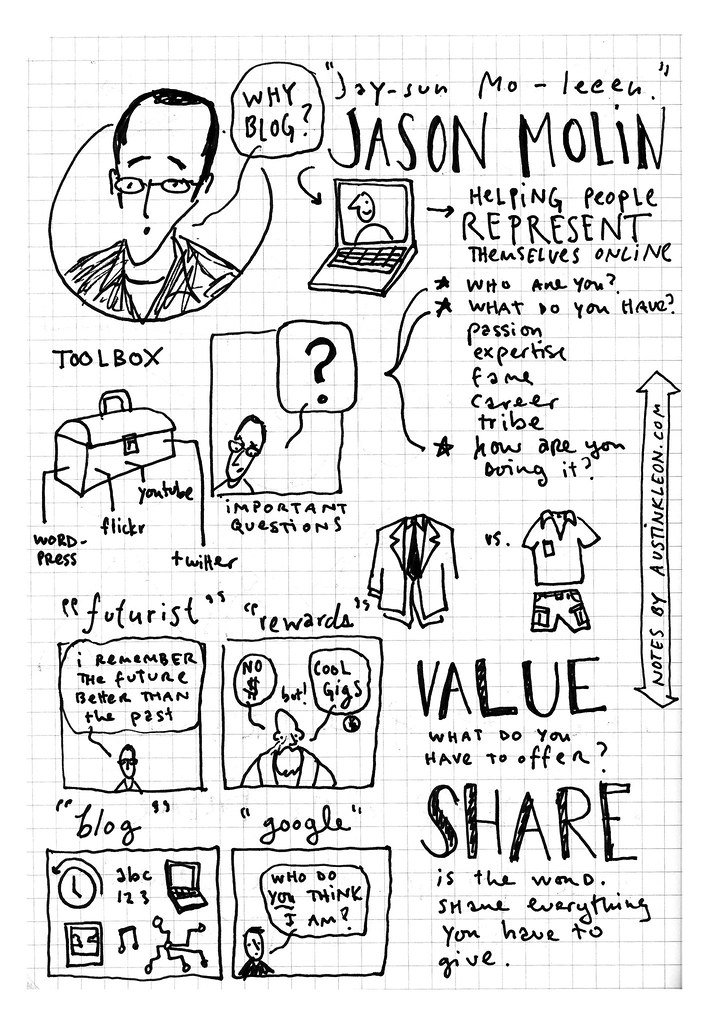 "Jay-sun Mo-leeen."
JASON MOLIN
WHY
BLOG?
HELPING PEOPLE
REPRESENT
THEMSELVES ONLINE
WHO ARE YOU?
WHAT DO YOU HAVE?
passion
expertise
fame
career
tribe
HOW ARE YOU
DOING IT?
TOOLBOX
WORD-
PRESS
flickr
youtube
twitter
?
IMPORTANT
QUESTIONS
vs.
NOTES BY AUSTINKLEON.COM
"futurist"
i REMEMBER
THE FUTURE
BETTER THAN
the past
"rewards"
NO
$
but!
COOL
GIGS
"blog"
abc
123
"google"
WHO DO
YOU THINK
I AM?
VALUE
WHAT DO YOU
HAVE TO OFFER?
SHARE
is the word.
SHARE everything
you have to
give.